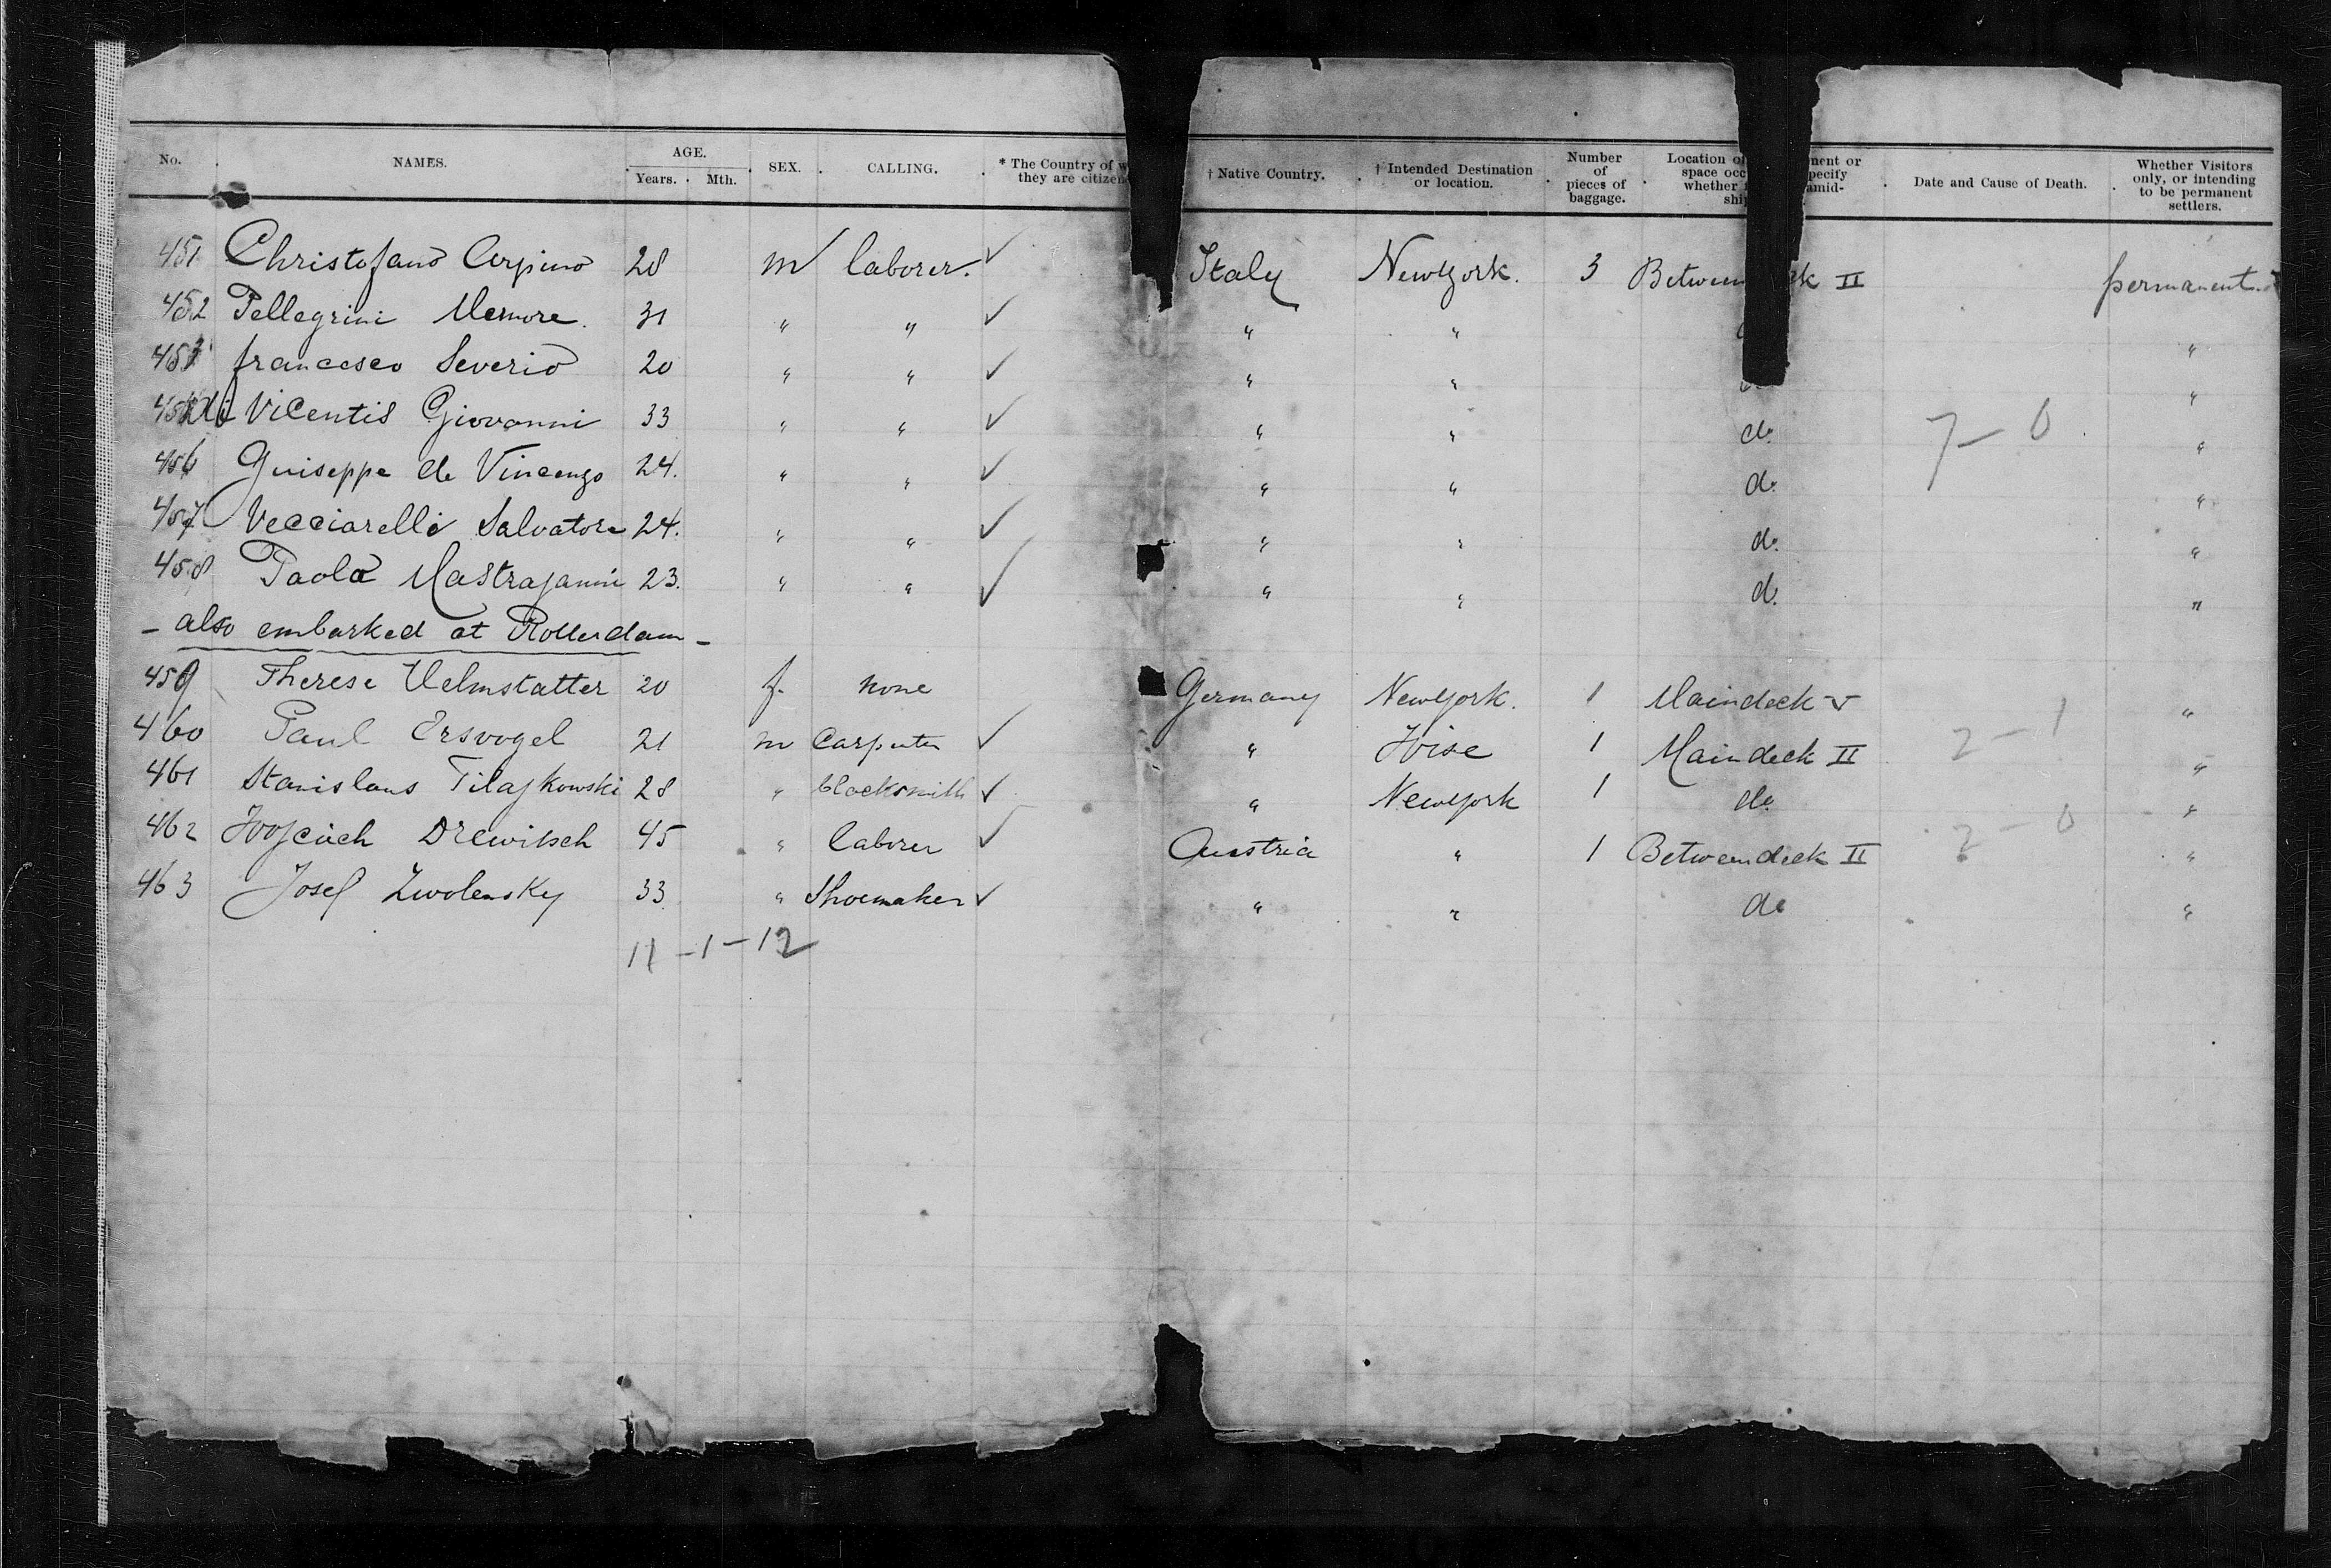 No. NAMES. AGE. Years. Mth. SEX. CALLING. * The Country of w they are citizen † Native Country. † Intended Destination or location. Number of pieces of baggage. Location of space occ whether ship nent or pecify amid- Date and Cause of Death. Whether Visitors only, or intending to be permanent settlers.
451 Christofano Cerpino 28 m laborer. ✓ Italy NewYork. 3 Between k II permanent.
452 Pellegrini Memore. 31 " " ✓ " " "
453 francesco Severio 20 " " ✓ " " "
di Vicentis Giovanni 33 " " ✓ " " do 7-0 "
456 Guiseppe de Vincenzo 24. " " ✓ " " do "
457 Vecciarelli Salvatore 24. " " ✓ " " do "
458 Paola Mastrajanni 23. " " ✓ " " do "
- also embarked at Rotterdam -
459 Therese Helmstatter 20 f. none Germany NewYork. 1 Maindeck V "
460 Paul Ersvogel 21 m Carpenter ✓ " Wise 1 Maindeck II 2-1 "
461 Stanislaus Tilajkowski 28 " blacksmith ✓ " NewYork 1 do "
462 Wojciech Drewitsch 45 " laborer ✓ Austria " 1 Betweendeck II 2-0 "
463 Josef Zwolensky 33 " Shoemaker ✓ " " do "
11-1-12